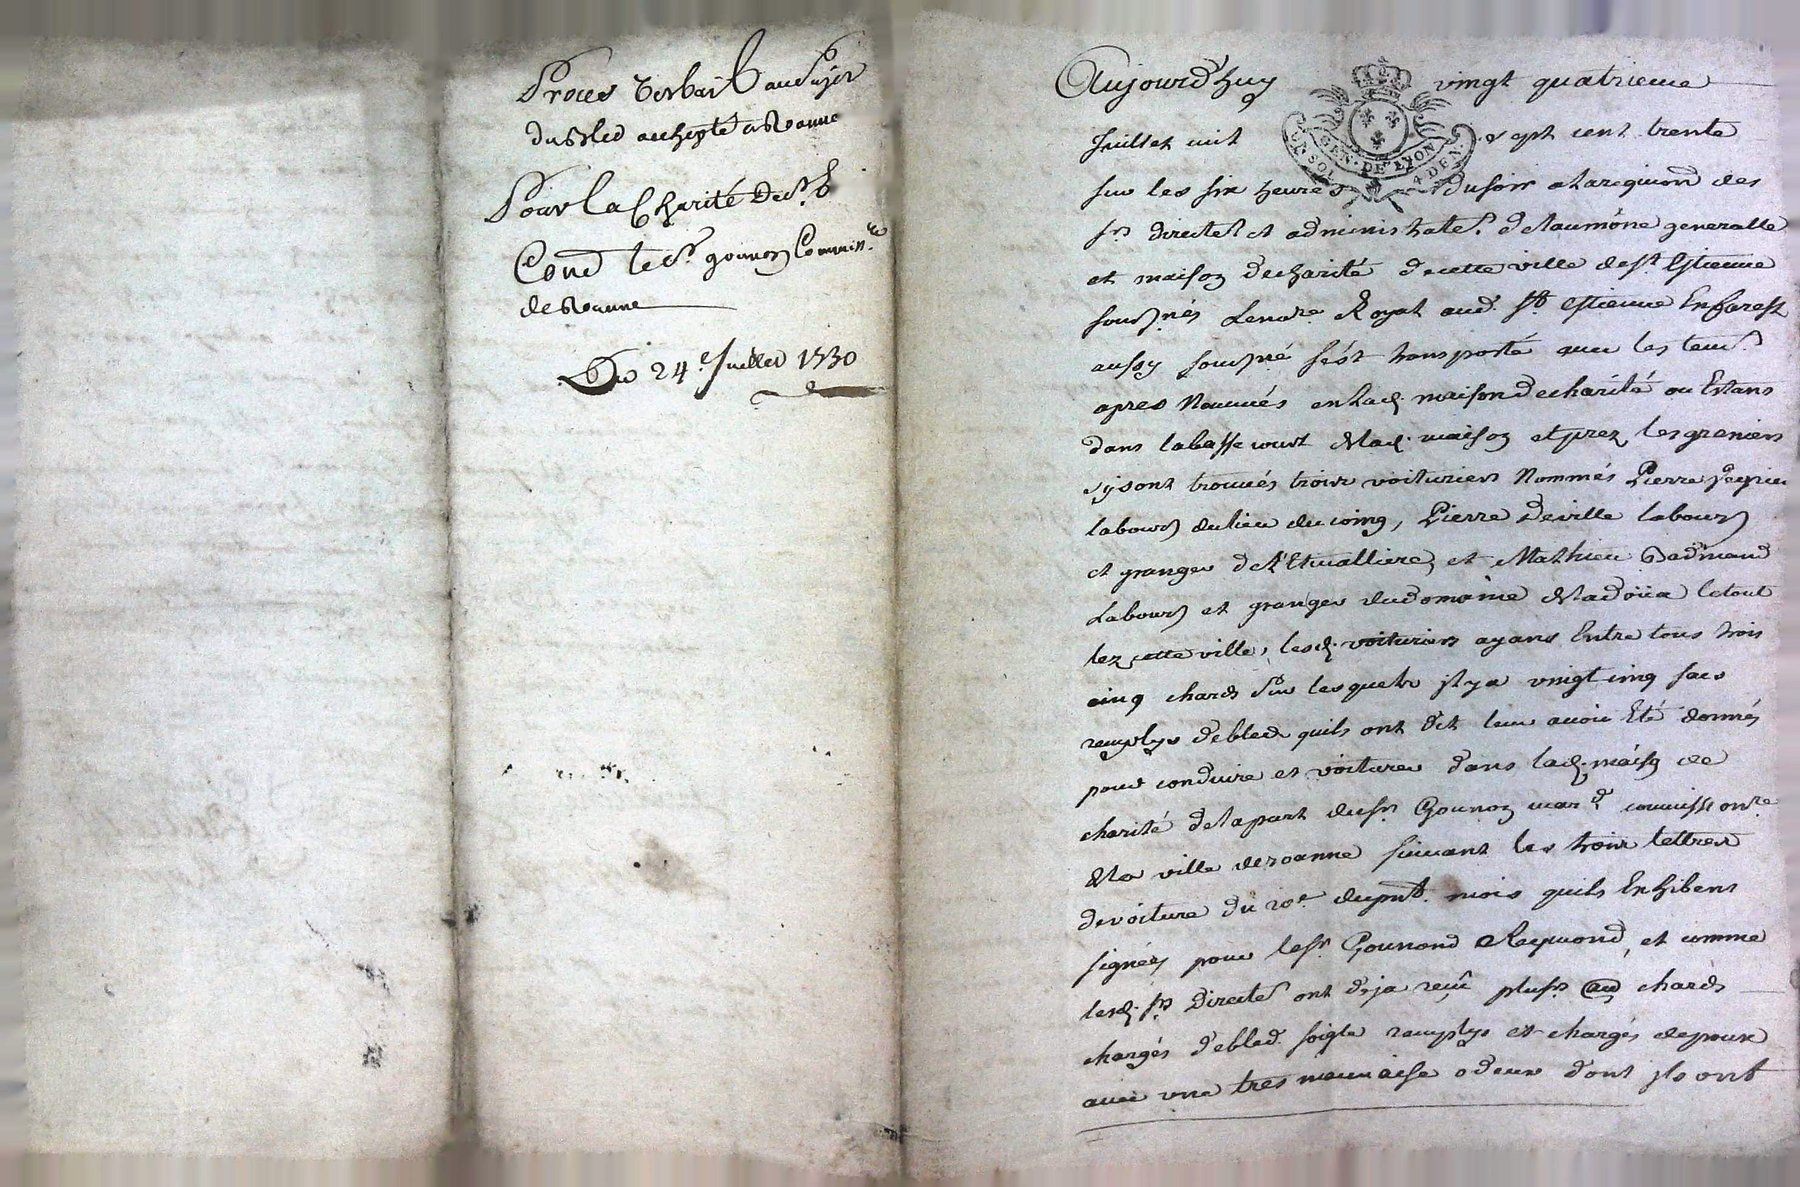 Proces verbail au sujet
du bled achepté a Roanne
Pour la Charité de St. E
Cond le Sr. gonnon Commiss.re
de Roanne
Du 24.e Juillet 1730
Aujourd'huy vingt quatrieme
Juillet mil sept cent trente
sur les six heures du soir a la requion des
srs directers et administrates. de laumône generalle
et maison de charité de cette ville de st Estienne
sousnés Royat aud. st estienne En forest
aussy sousné s'est transporté avec les
apres Nommés en lad. maison de charité ou Estans
dans la basse court de lad. maison et prez les greniers
sy sont trouvés trois voituriers Nommés Pierre
labour du lieu du coing, Pierre deville labour
et granger de l'Etivalliere, et Mathieu
Labour et granger du domaine de la doüa le tout
lez cette ville, lesd. voituriers ayans Entre tous trois
cinq chards sur lesquels il y a vingt cinq sacs
remplys de bled quils ont dit leur avoir Eté donnés
pour conduire et voiturer dans lad. maison de
charité de la part du sr. Gounon mard. commissonre.
de la ville de roanne suivant les trois lettres
de voiture du 20e du pnt. mois quils Exhibent
signées pour le sr. Gounond Reymond, et comme
lesd. srs Directes ont deja reçû plusrs chards
chargés de bled soigle remplys et chargés de
avec une tres mauvaise odeur dont ils ont
GEN. DE LYON